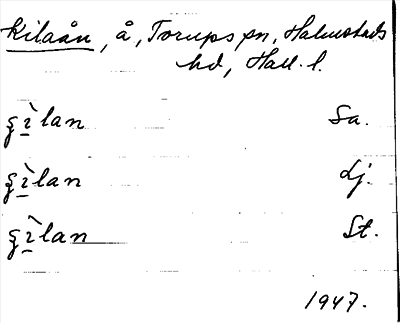 Kilaån, å, Torups sn, Halmstads
hd, Hall. l.
ʂì̱lan Sa.
ʂì̱lan dj.
ʂì̱lan St.
1947.